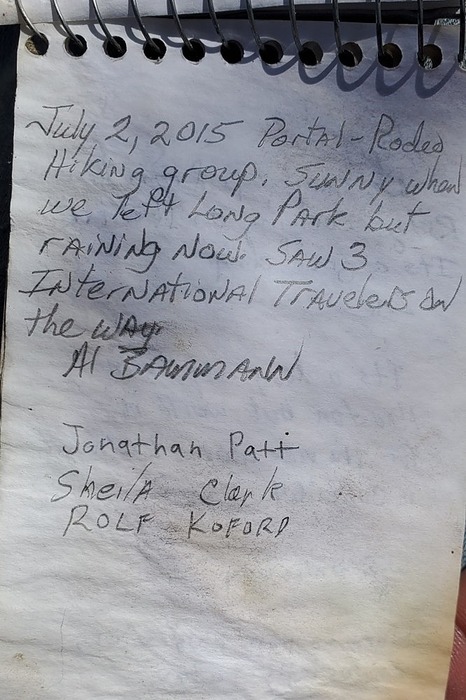 July 2, 2015 Portal-Rodeo
Hiking group. Sunny when
we left Long Park but
raining now. Saw 3
International Travelers on
the way.
Al Bammann
Jonathan Patt
Sheila Clark
Rolf Koford